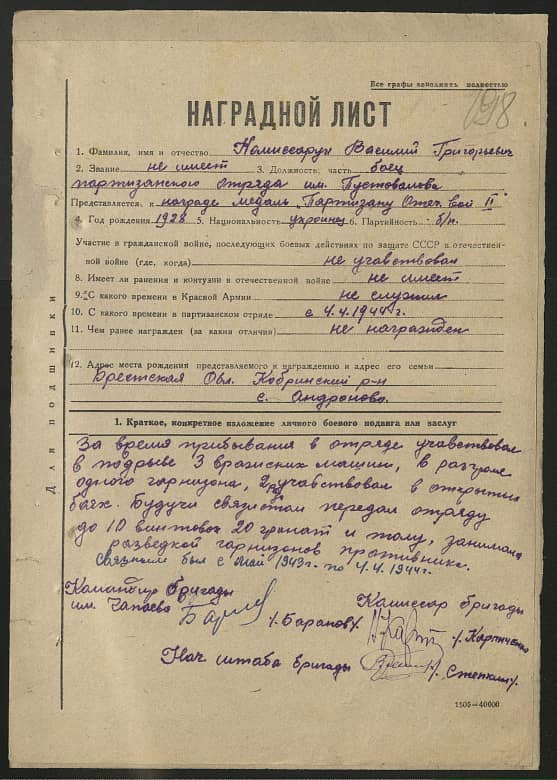 Все графы заполнять полностью
198
НАГРАДНОЙ ЛИСТ
1. Фамилия, имя и отчество Комиссарук Василий Григорьевич
2. Звание не имеет 3. Должность, часть боец
партизанского отряда им. Пустовалова
Представляется к награде медаль „Партизану Отеч. вой II"
4. Год рождения 1928 5. Национальность украинец 6. Партийность б/п.
Участие в гражданской войне, последующих боевых действиях по защите СССР в отечествен-
ной войне (где, когда) не учавствовал
8. Имеет ли ранения и контузии в отечественной войне не имеет
9. С какого времени в Красной Армии не служил
10. С какого времени в партизанском отряде с 4.4.1944 г.
11. Чем ранее награжден (за какия отличия) не награжден
12. Адрес места рождения представляемого к награждению и адрес его семьи
Брестская Обл. Кобринский р-н
с. Андроново.
Для подшивки
1. Краткое, конкретное изложение личного боевого подвига или заслуг
За время прибывания в отряде учавствовал
в подрыве 3 вражиских машин, в разгроме
одного гарнизона, 2 раз учавствовал в открытых
боях. Будучи связистом передал отряду
до 10 винтовок 20 гранат и толу, занимался
разведкой гарнизонов противника.
Связным был с Май 1943г. по 4.4.1944г.
Командир бригады
им. Чапаева /Баранов/
Комиссар бригады
/Картченко
Нач штаба бригады /Степкин/.
1505—40000